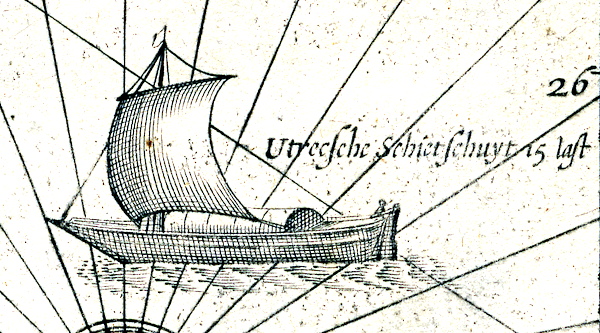 26
Utrecsche Schietschuyt 15 last